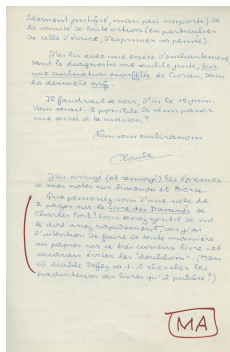 blement justifié, mais peu importe) de
la vanité de toute action (en particulier
de celle d'écrire, d'exprimer sa pensée).
J'ai lu avec une espèce d'enchantement,
tant le diagnostic me semble juste, Sur
une civilisation essoufflée, de Cioran, dans
la dernière nrf.
Il faudrait se voir, d'ici le 15 juin.
Vous serait-il possible de venir passer
une soirée à la maison?
Nous vous embrassons
Claude
J'ai corrigé (et renvoyé) les épreuves
de mes notes sur Simenon et Bierce.
Que penseriez-vous d'une note de
2 pages sur le Livre des Damnés, de
Charles Fort? Vous serez gentil de me
le dire assez rapidement, car j'ai
l'intention de faire de toute manière
un papier sur ce très curieux livre - et
voudrais éviter les "doublons". (Mais
où diable va-t-il chercher les
traducteurs des livres qu'il publie?)
MA